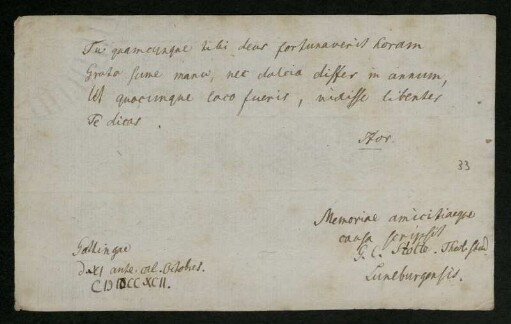 Tu quamcunque tibi deus fortunaverit horam
Grata sume manu, nec dulcia differ in annum,
Ut quocunque loco fueris, vixisse libenter
Te dicas.
Hor.
33
Memoriae amicitiaeque
causa scripsit
G. C. Stolte. Theol. Stud.
Luneburgensis.
Gottingae
d. XI ante. cal. Octobres.
CIƆIƆCCXCII.